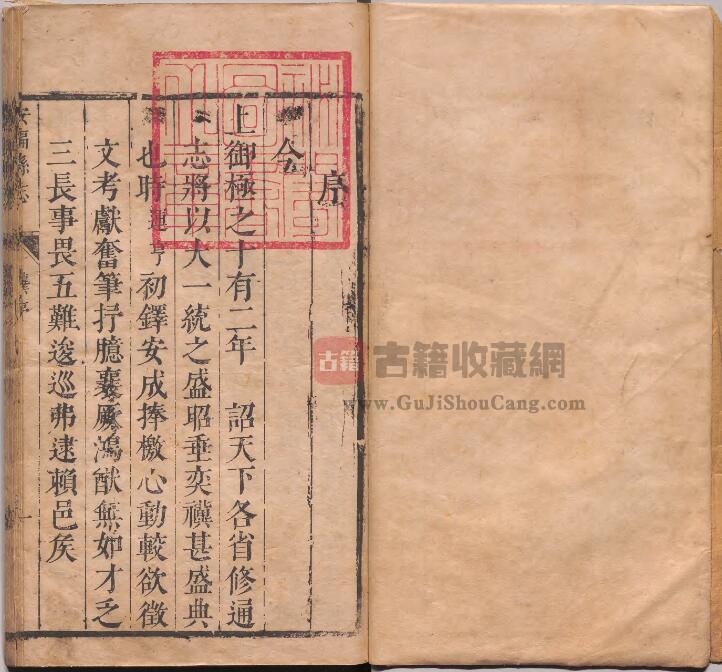 序
今
上御極之十有二年　詔天下各省修通
志將以大一統之盛昭垂奕禩甚盛典
也時運亨初鐸安成捧檄心動較欲徵
文考獻奮筆抒臆襄厥鴻猷無如才乏
三長事畏五難逡巡弗逮賴邑矦
安福縣志
序
一
古籍
古籍收藏網
www.GuJiShouCang.com